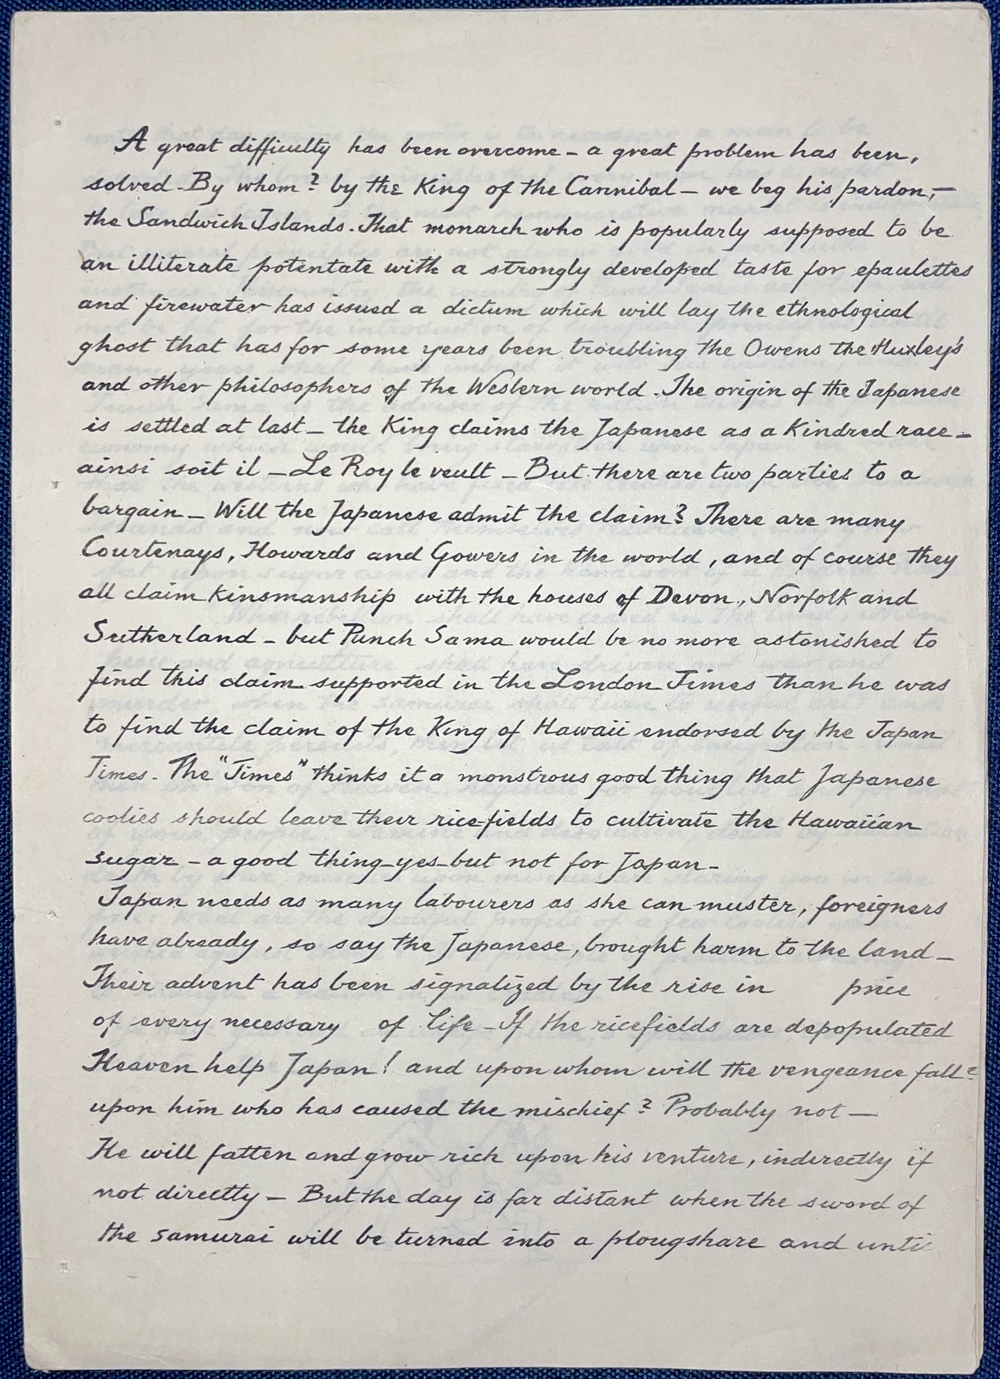 A great difficulty has been overcome – a great problem has been,
solved – By whom? by the King of the Cannibal – we beg his pardon, –
the Sandwich Islands. That monarch who is popularly supposed to be
an illiterate potentate with a strongly developed taste for epaulettes
and firewater has issued a dictum which will lay the ethnological
ghost that has for some years been troubling the Owens the Huxley's
and other philosophers of the Western world. The origin of the Japanese
is settled at last – the King claims the Japanese as a kindred race –
ainsi soit il – Le Roy le veult – But there are two parties to a
bargain – Will the Japanese admit the claim? There are many
Courtenays, Howards and Gowers in the world, and of course they
all claim kinsmanship with the houses of Devon, Norfolk and
Sutherland – but Punch Sama would be no more astonished to
find this claim supported in the London Times than he was
to find the claim of the King of Hawaii endorsed by the Japan
Times. The "Times" thinks it a monstrous good thing that Japanese
coolies should leave their ricefields to cultivate the Hawaiian
sugar – a good thing – yes – but not for Japan –
Japan needs as many labourers as she can muster, foreigners
have already, so say the Japanese, brought harm to the land –
Their advent has been signalized by the rise in price
of every necessary of life – If the ricefields are depopulated
Heaven help Japan! and upon whom will the vengeance fall?
upon him who has caused the mischief? Probably not –
He will fatten and grow rich upon his venture, indirectly if
not directly – But the day is far distant when the sword of
the samurai will be turned into a plougshare and until